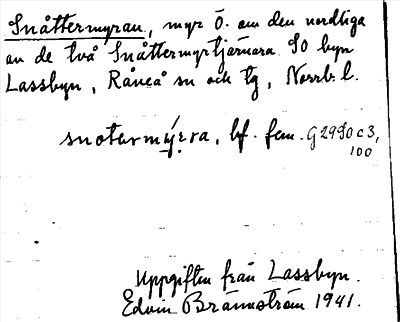 Snåttermyran, myr Ö. om den nordliga
av de två Snåttermyrtjärnara. SO byn
Lassbyn, Råneå sn och tg, Norrb. l.
snotermy̜rra, bf. fem. G2990c3,
100
Uppgiften från Lassbyn.
Edvin Brännström 1941.